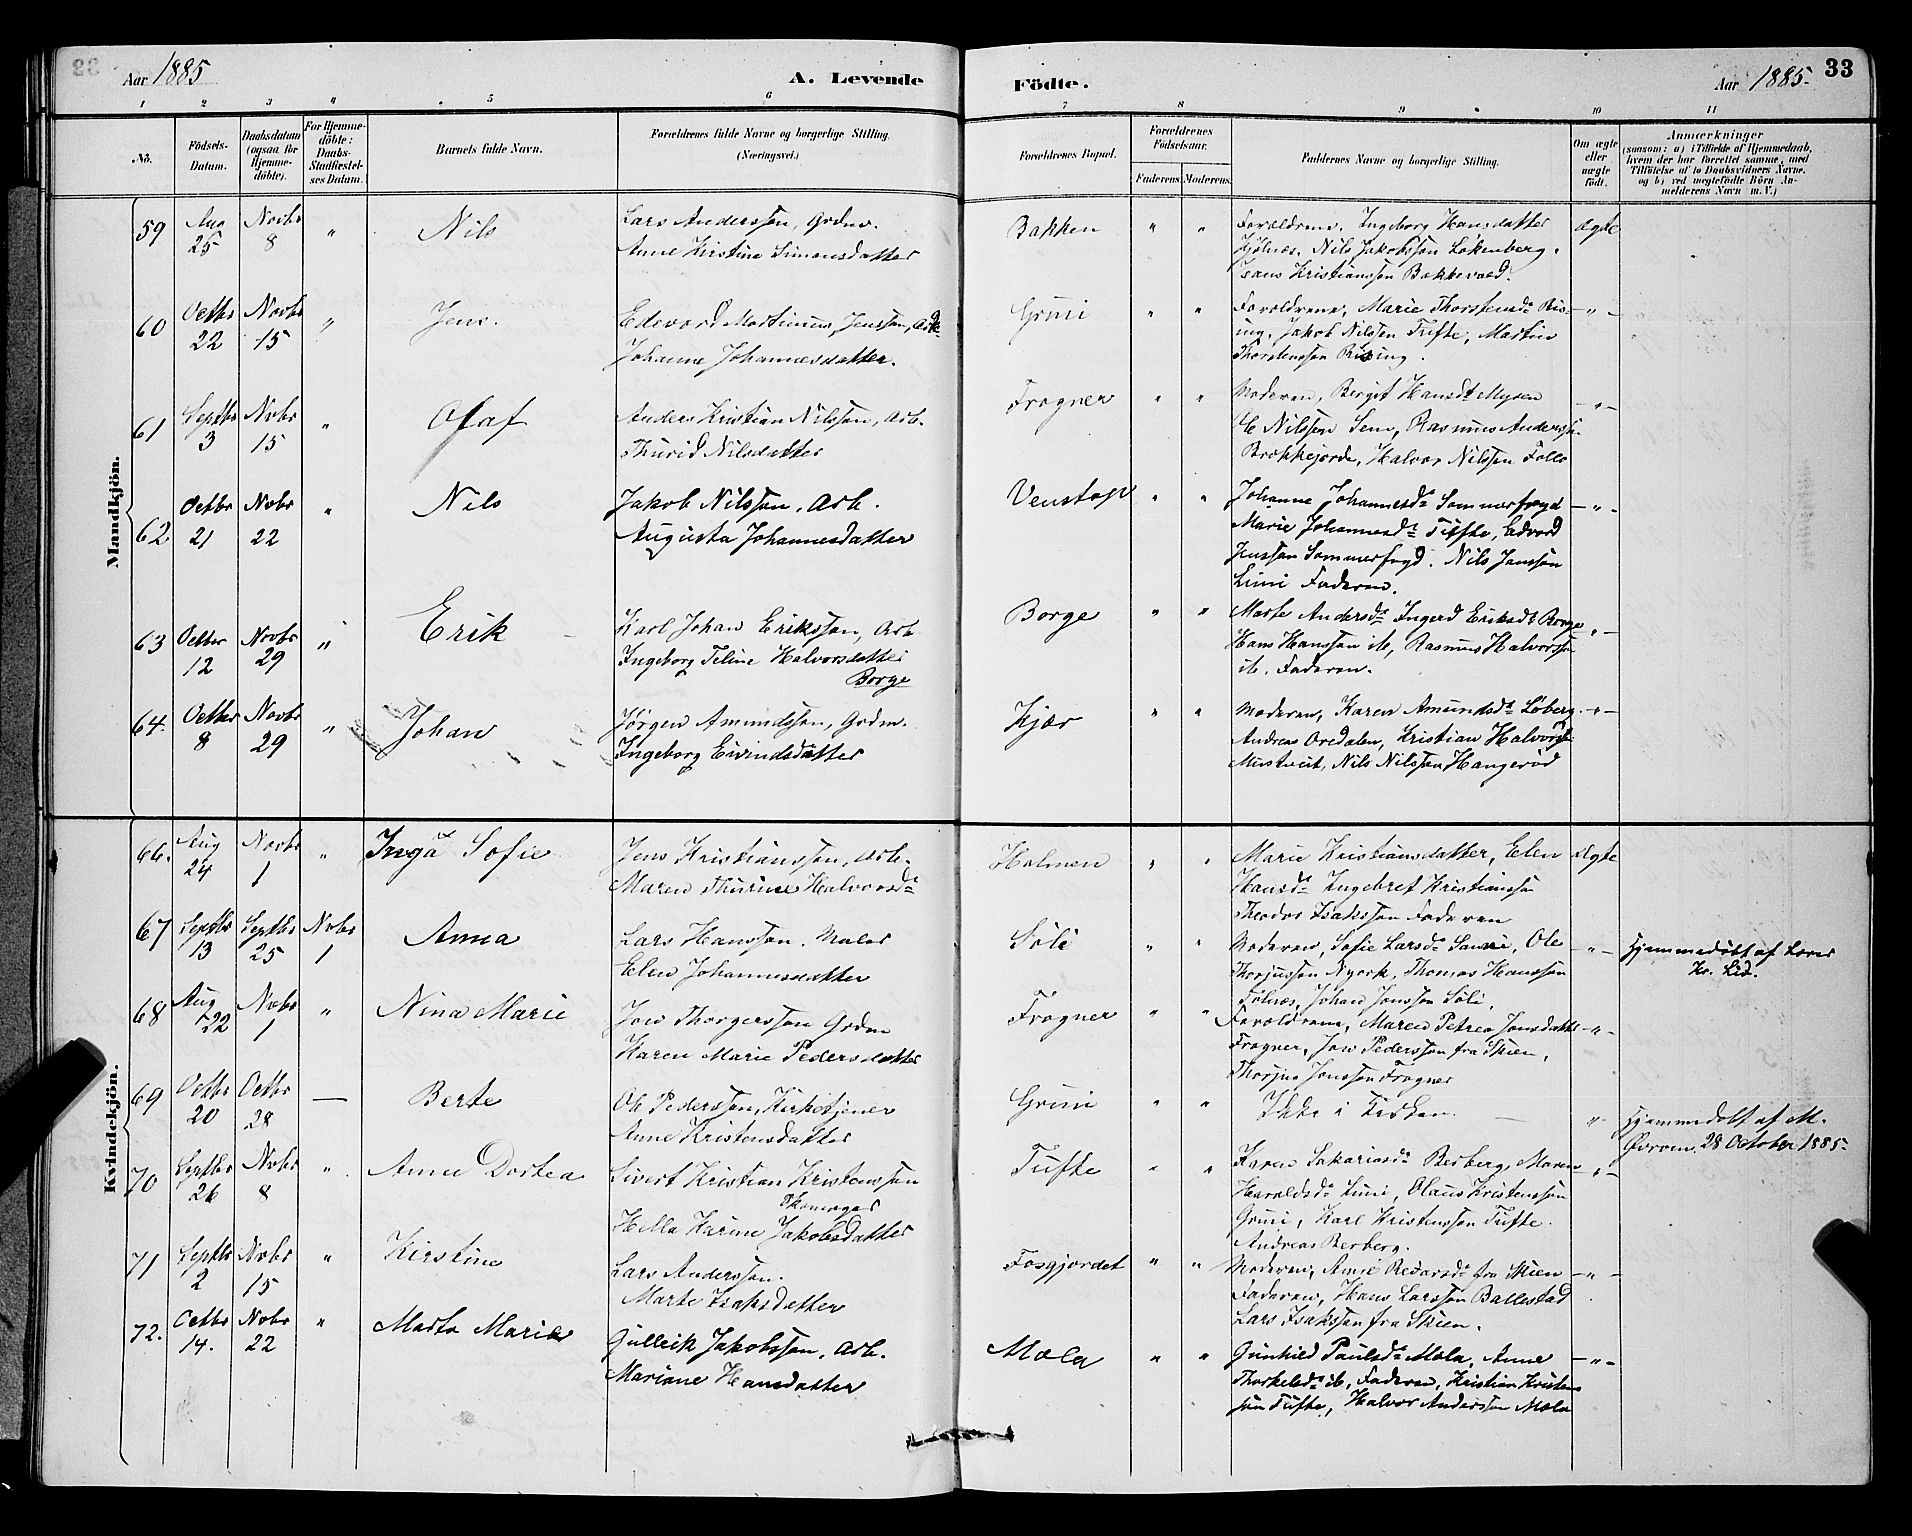 Aar 1885
A. Levende
Födte.
Aar 1885.
33
1 2 3 4 5 6 7 8 9 10 11
No.
Födsels-
Datum.
Daabsdatum
(ogsaa for
Hjemme-
døbte).
For Hjemme-
döbte:
Daabs-
Stadfæstel-
ses Datum.
Barnets fulde Navn.
Forældrenes fulde Navne og borgerlige Stilling.
(Næringsvei.)
Forældrenes Bopæl.
Forældrenes
Födselsaar.
Faderens.
Moderens.
Faddernes Navne og borgerlige Stilling.
Om ægte
eller
uægte
födt.
Anmærkninger
(saasom: a) i Tilfælde af Hjemmedaab,
hvem der har forrettet samme, med
Tilføielse af to Daabsvidners Navne,
og b) ved uægtefødte Börn An-
melderens Navn m. V.)
Mandkjön.
59 Aug 25 Novbr 8 " Nils
Lars Anderssøn, Grdm.
Anne Kirstine Simonsdatter
Bakken " "
Forældrene, Ingeborg Hansdatter
Hjelnæs, Nils Jakobssøn Løkenberg,
Isans Kristianssøn Bakkevold.
Ægte
60 Octbr 22 Novbr 15 " Jens.
Edevard Martinius Jenssøn, Arb.
Johanne Johannesdatter.
Grini " "
Forældrene, Marie Thorstensdr Ris-
ing, Jakob Nilssøn Tufte, Martin
Thorstenssøn Rising.
– " –
61 Septbr 3 Novbr 15 " Olaf
Anders Kristian Nilssøn, Arb.
Thurid Nilsdatter
Frogner " "
Moderen, Bergit Hansdr Mysen
Ole Nilssøn Sem, Rasmus Anderssøn
Brækkejorde, Halvor Nilssøn Follo
– " –
62 Octbr 21 Novbr 22 " Nils
Jakob Nilssøn, Arb.
Augusta Johannesdatter
Venstøp " "
Johanne Johannesdr Sommerfryd
Marie Johannesdr Tufte, Edvard
Jenssøn Sommerfryd. Nils Janssøn
Limi Faderen.
– " –
63 Octbr 12 Novbr 29 " Erik
Karl Johan Erikssøn, Arb
Ingeborg Teline Halvorsdatter
Borge
Borge " "
Marte Andersdr Ingerd Eriksdr Borge
Hans Hanssøn ib, Rasmus Halvorssøn
ib. Faderen.
" –
64. Octbr 8 Novbr 29 " Johan
Jørgen Amundssøn, Grdm.
Ingeborg Eivindsdatter
Kjær " "
Moderen, Karen Amundsdr Løberg.
Andreas Oredalen, Kristian Halvorss.
Mustveit, Nils Nilssøn Hangerød
– " –
Kvindekjön.
66. Aug 24 Novbr 1 " Inga Sofie
Jens Kristianssøn, Arb.
Maren Thurine Halvorsdr
Holmen " "
Marie Kristiansdatter, Elen
Hansdr Ingebret Kristianssøn
Theodor Isakssøn Faderen
Ægte
67 Septbr 13 Septbr 25 Novbr 1 Anna
Lars Hanssøn. Maler
Elen Johannesdatter
Söli " "
Moderen, Sofie Larsdr Sanni, Ole
Thorjussøn Nyork, Thomas Hanssøn
Tolnæs, Johan Jonssøn Söli.
" –
Hjemmedøbt af Lærer
Kr. Lid.
68 Aug 22 Novbr 1 " Nina Marie
Jon Thorgerssøn Grdm
Karen Marie Pedersdatter
Frogner " "
Forældrene, Maren Petrea Jonsdatter
Frogner, Jon Pederssøn fra Skien,
Thorjus Jonssøn Frogner
– " –
69 Octbr 20 Octbr 28 — Berte
Ole Pederssøn, Kirketjener
Anne Kristensdatter
Grini " "
Ikke i Kirken.
" –
Hjemmedøbt af M.
28 October 1885.
70 Septbr 26 Novbr 8 " Anne Dortea
Sivert Kristian Kristenssøn
Skomager
Hella Karine Jakobsdatter
Tufte " "
Karen Sakariasdr Berberg, Maren
Haraldsdr Limi, Olaus Kristenssøn
Grini, Karl Kristenssøn Tufte.
Andreas Berberg.
" –
71 Septbr 2 Novbr 15 " Kirstine
Lars Anderssøn.
Marte Isaksdatter
Fosgjordet " "
Moderen, Anne Pedersdr fra Skien
Faderen, Hans Larssøn Ballestad
Lars Isakssøn fra Skien.
– " –
72. Octbr 14. Novbr 22 " Marta Marie
Gulleik Jakobssøn, Arb.
Mariane Hansdatter
Mæla " "
Gunhild Paulsdr Mæla, Anne
Thorkelsdr ib, Faderen, Kristian Kristens
søn Tufte, Halvor Anderssøn Mæla
– " –